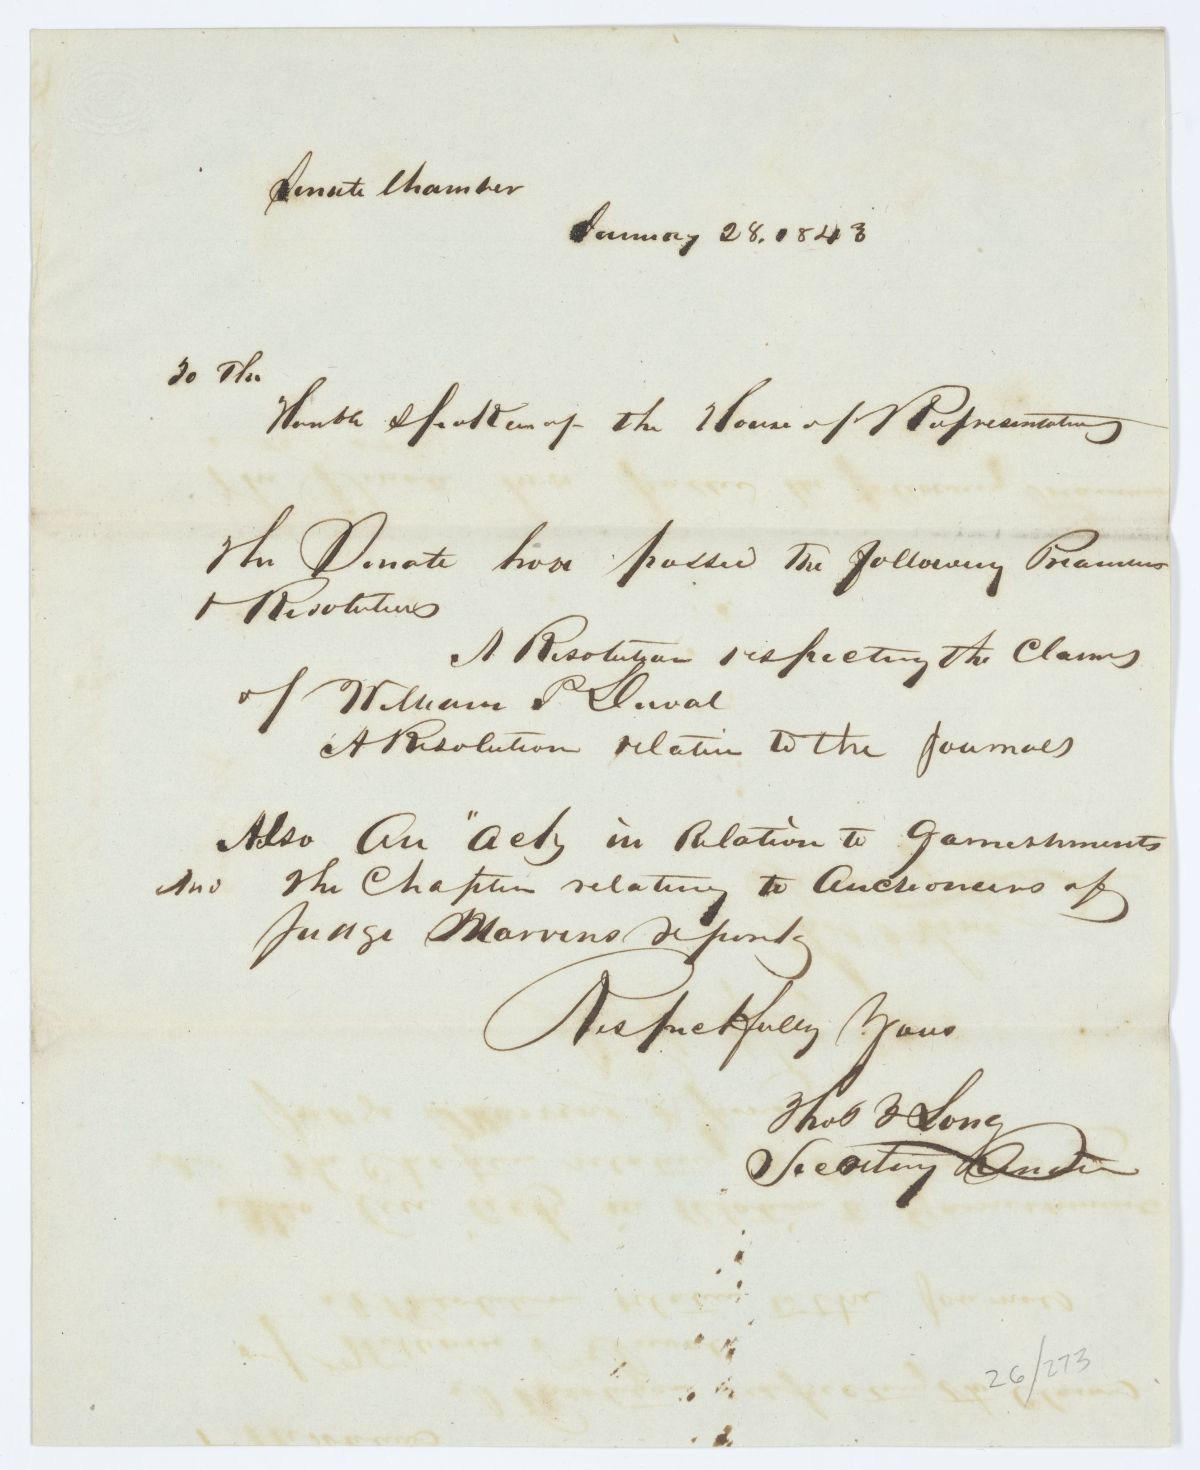 Senate Chamber
January 28. 1843
To The
Honble Speaker of the House of Representatives
The Senate have passed the following Preamble
& Resolutions
A Resolution respecting the Claims
of William P Duval
A Resolution relative to the Journals
Also An "Act, in Relation to Garnishments
And The Chapter relating to Auctioneers of
Judge Marvins report
Respectfully Yours
Thos T Long
Secretary Senate
26/273